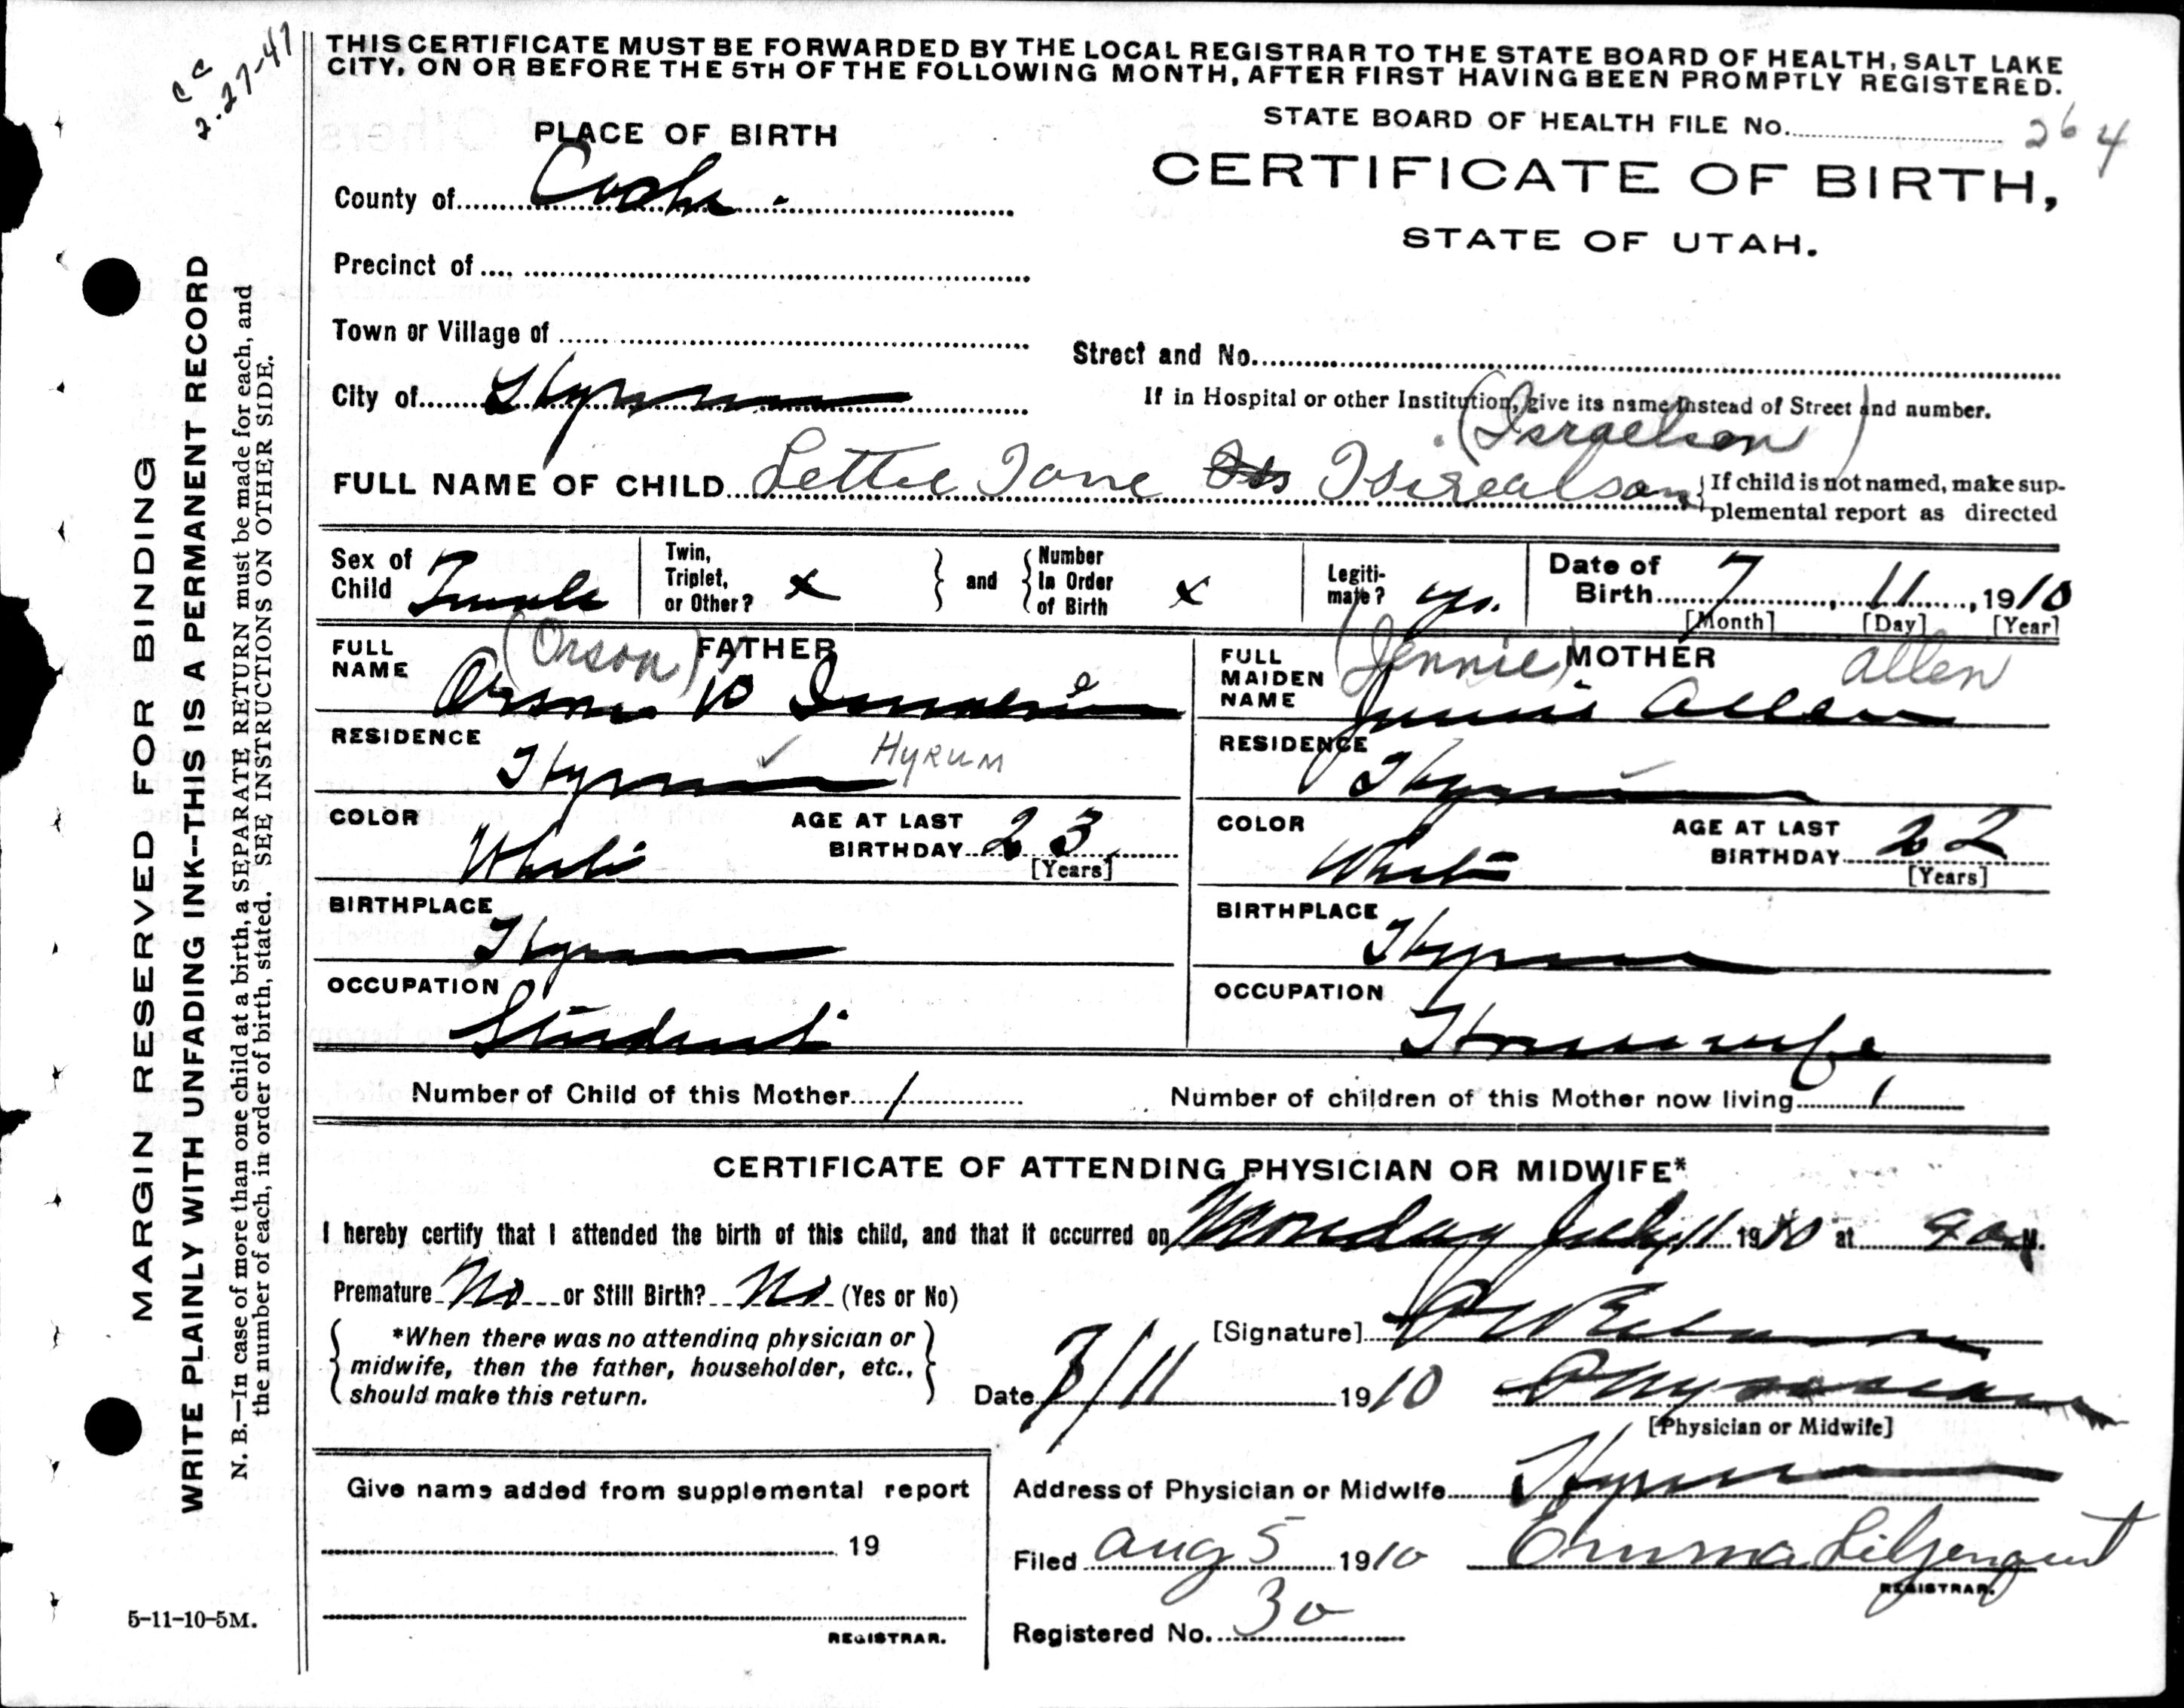 cc
2-27-41
THIS CERTIFICATE MUST BE FORWARDED BY THE LOCAL REGISTRAR TO THE STATE BOARD OF HEALTH, SALT LAKE
CITY, ON OR BEFORE THE 5TH OF THE FOLLOWING MONTH, AFTER FIRST HAVING BEEN PROMPTLY REGISTERED.
STATE BOARD OF HEALTH FILE No. 264
PLACE OF BIRTH
CERTIFICATE OF BIRTH,
STATE OF UTAH.
County of Cache
Precinct of
Town or Village of
Street and No.
City of Hyrum
If in Hospital or other Institution, give its name instead of Street and number.
(Israelsen)
FULL NAME OF CHILD Lettie Jane Isirealson
If child is not named, make sup-
plemental report as directed
Sex of Child Female
Twin, Triplet, or Other? x
and
Number In Order of Birth x
Legiti-mate? yes.
Date of Birth 7, 11, 1910
[Month] [Day] [Year]
FATHER
FULL NAME (Orson)
Orson
RESIDENCE
Hyrum HYRUM
COLOR White
AGE AT LAST BIRTHDAY 23
[Years]
BIRTHPLACE
Hyrum
OCCUPATION
Student
MOTHER
FULL MAIDEN NAME (Jennie) Allen
Jennie Allen
RESIDENCE
Hyrum
COLOR White
AGE AT LAST BIRTHDAY 22
[Years]
BIRTHPLACE
Hyrum
OCCUPATION
Housewife
Number of Child of this Mother 1
Number of children of this Mother now living 1
CERTIFICATE OF ATTENDING PHYSICIAN OR MIDWIFE*
I hereby certify that I attended the birth of this child, and that it occurred on Monday July 11 1910 at 9 a M.
Premature No or Still Birth? No (Yes or No)
*When there was no attending physician or
midwife, then the father, householder, etc.,
should make this return.
[Signature]
Date 7/11 1910
Physician
[Physician or Midwife]
Give name added from supplemental report
19
REGISTRAR.
Address of Physician or Midwife Hyrum
Filed Aug 5 1910 Emma Liljenquist
REGISTRAR.
Registered No. 30
MARGIN RESERVED FOR BINDING
WRITE PLAINLY WITH UNFADING INK--THIS IS A PERMANENT RECORD
N. B.—In case of more than one child at a birth, a SEPARATE RETURN must be made for each, and
the number of each, in order of birth, stated. SEE INSTRUCTIONS ON OTHER SIDE.
5-11-10-5M.